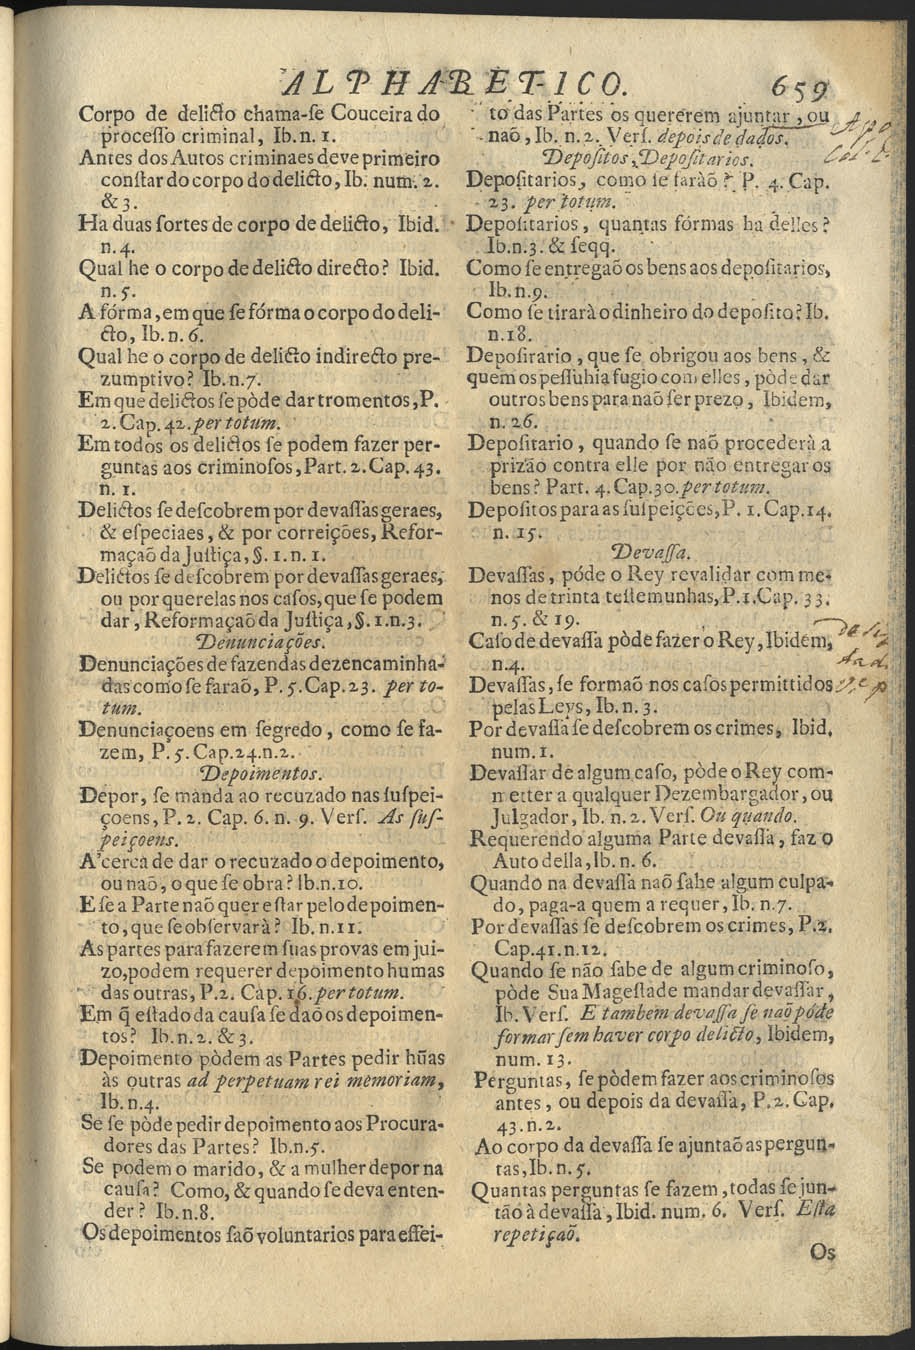 ALPHABETICO. 659
Corpo de delicto chama-ſe Couceira do
proceſſo criminal, Ib. n. 1.
Antes dos Autos criminaes deve primeiro
conſtar do corpo do delicto, Ib. num. 2.
& 3.
Ha duas ſortes de corpo de delicto, Ibid.
n. 4.
Qual he o corpo de delicto directo? Ibid.
n. 5.
A fórma, em que ſe fórma o corpo do deli-
cto, Ib. n. 6.
Qual he o corpo de delicto indirecto pre-
zumptivo? Ib. n. 7.
Em que delictos ſe pòde dar tromentos, P.
2. Cap. 42. per totum.
Em todos os delictos ſe podem fazer per-
guntas aos criminoſos, Part. 2. Cap. 43.
n. 1.
Delictos ſe deſcobrem por devaſſas geraes,
& eſpeciaes, & por correições, Refor-
maçaõ da Juſtiça, §. 1. n. 1.
Delictos ſe deſcobrem por devaſſas geraes,
ou por querelas nos caſos, que ſe podem
dar, Reformaçaõ da Juſtiça, §. 1. n. 3.
Denunciações.
Denunciações de fazendas dezencaminha-
das como ſe faraõ, P. 5. Cap. 23. per to-
tum.
Denunciaçoens em ſegredo, como ſe fa-
zem, P. 5. Cap. 24. n. 2.
Depoimentos.
Depor, ſe manda ao recuzado nas ſuſpei-
çoens, P. 2. Cap. 6. n. 9. Verſ. As ſuſ-
peiçoens.
A'cerca de dar o recuzado o depoimento,
ou naõ, o que ſe obra? Ib. n. 10.
E ſe a Parte naõ quer eſtar pelo depoimen-
to, que ſe obſervarà? Ib. n. 11.
As partes para fazerem ſuas provas em jui-
zo, podem requerer depoimento humas
das outras, P. 2. Cap. 16. per totum.
Em q̃ eſtado da cauſa ſe daõ os depoimen-
tos? Ib. n. 2. & 3.
Depoimento pòdem as Partes pedir hũas
às outras ad perpetuam rei memoriam,
Ib. n. 4.
Se ſe pòde pedir depoimento aos Procura-
dores das Partes? Ib. n. 5.
Se podem o marido, & a mulher depor na
cauſa? Como, & quando ſe deva enten-
der? Ib. n. 8.
Os depoimentos ſaõ voluntarios para effei-
to das Partes os quererem ajuntar, ou
naõ, Ib. n. 2. Verſ. depois de dados.
Depoſitos, Depoſitarios.
Depoſitarios, como ſe faràõ? P. 4. Cap.
23. per totum.
Depoſitarios, quantas fórmas ha delles?
Ib. n. 3. & ſeqq.
Como ſe entregaõ os bens aos depoſitarios,
Ib. n. 9.
Como ſe tirarà o dinheiro do depoſito? Ib.
n. 18.
Depoſirario, que ſe obrigou aos bens, &
quem os peſſuhia fugio com elles, pòde dar
outros bens para naõ ſer prezo, Ibidem,
n. 26.
Depoſitario, quando ſe naõ procederà a
prizaõ contra elle por não entregar os
bens? Part. 4. Cap. 30. per totum.
Depoſitos para as ſuſpeições, P. 1. Cap. 14.
n. 15.
Devaſſa.
Devaſſas, póde o Rey revalidar com me-
nos de trinta teſtemunhas, P. 1. Cap. 33.
n. 5. & 19.
Caſo de devaſſa pòde fazer o Rey, Ibidem,
n. 4.
Devaſſas, ſe formaõ nos caſos permittidos
pelas Leys, Ib. n. 3.
Por devaſſa ſe deſcobrem os crimes, Ibid.
num. 1.
Devaſſar de algum caſo, pòde o Rey com-
metter a qualquer Dezembargador, ou
Julgador, Ib. n. 2. Verſ. Ou quando.
Requerendo alguma Parte devaſſa, faz o
Auto della, Ib. n. 6.
Quando na devaſſa naõ ſahe algum culpa-
do, paga-a quem a requer, Ib. n. 7.
Por devaſſas ſe deſcobrem os crimes, P. 2.
Cap. 41. n. 12.
Quando ſe não ſabe de algum criminoſo,
pòde Sua Mageſtade mandar devaſſar,
Ib. Verſ. E tambem devaſſa ſe naõ póde
formar ſem haver corpo delicto, Ibidem,
num. 13.
Perguntas, ſe pòdem fazer aos criminoſos
antes, ou depois da devaſſa, P. 2. Cap.
43. n. 2.
Ao corpo da devaſſa ſe ajuntaõ as pergun-
tas, Ib. n. 5.
Quantas perguntas ſe fazem, todas ſe jun-
tão à devaſſa, Ibid. num. 6. Verſ. Eſta
repetiçaõ.
Os